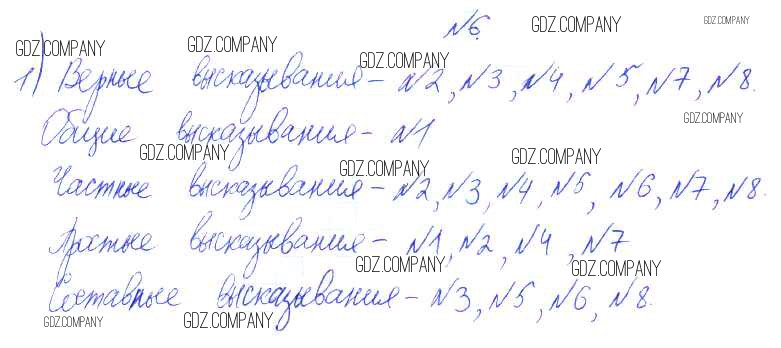 №6.
1) Верные высказывания – №2, №3, №4, №5, №7, №8.
Общие высказывания – №1
Частные высказывания – №2, №3, №4, №5, №6, №7, №8.
Простые высказывания – №1, №2, №4, №7
Составные высказывания – №3, №5, №6, №8.
GDZ.COMPANY
GDZ.COMPANY
GDZ.COMPANY
GDZ.COMPANY
GDZ.COMPANY
GDZ.COMPANY
GDZ.COMPANY
GDZ.COMPANY
GDZ.COMPANY
GDZ.COMPANY
GDZ.COMPANY
GDZ.COMPANY
GDZ.COMPANY